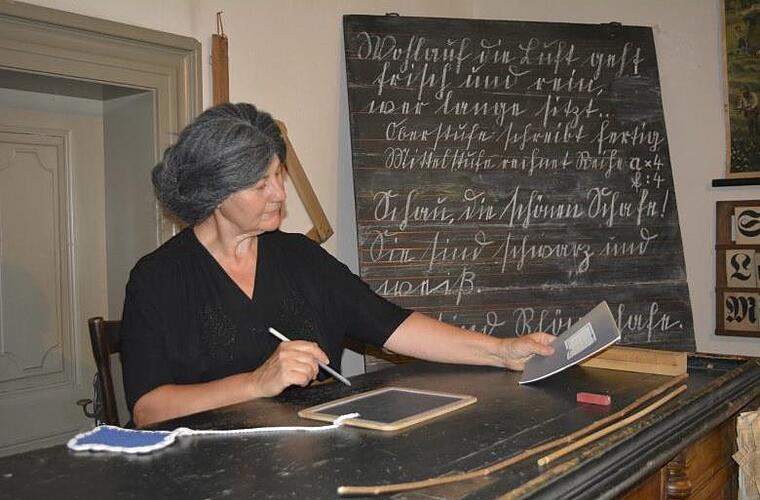 Wohlauf die Luft geht
frisch und rein,
wer lange sitzt..
Oberstufe schreibt fertig
Mittelstufe rechnet Reihe a×4
:4
Schau, die schönen Schafe!
Sie sind schwarz und
weiß.
sind Rhönschafe.
S
L
M